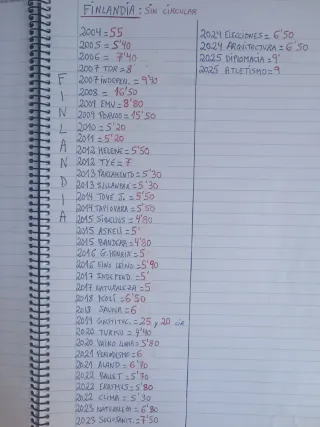 FINLANDIA: SIN CIRCULAR
FINLANDIA
2004 = 55
2005 = 5'40
2006 = 7'40
2007 TDR = 8
2007 INDEPEN. = 9'90
2008 = 16'50
2009 EMU = 8'80
2009 PORVOO = 15'50
2010 = 5'20
2011 = 5'20
2012 HELENE = 5'50
2012 TYE = 7
2013 PARLAMENTO = 5'30
2013 SILLANPÄÄ = 5'30
2014 TOVE J. = 5'50
2014 TAPIOVARA = 5'50
2015 SIBELIUS = 4'80
2015 ASKELI = 5'
2015 BANDERA = 4'80
2016 G. HENRIK = 5'
2016 EINO LEINO = 5'90
2017 INDEPEND. = 5'
2017 NATURALEZA = 5
2018 KOLI = 6'50
2018 SAUNA = 6
2019 CONSTITUC. = 25 y 20
2020 TURKU = 4'40
2020 VÄINÖ LINNA = 5'80
2021 PERIODISMO = 6
2021 ALAND = 6'70
2022 BALLET = 5'70
2022 ERASMUS = 5'80
2022 CLIMA = 5'30
2023 NATURALEZA = 6'80
2023 SOCIOSANIT. = 7'50
2024 ELECCIONES = 6'50
2024 ARQUITECTURA = 6'50
2025 DIPLOMACIA = 9'
2025 ATLETISMO = 9'